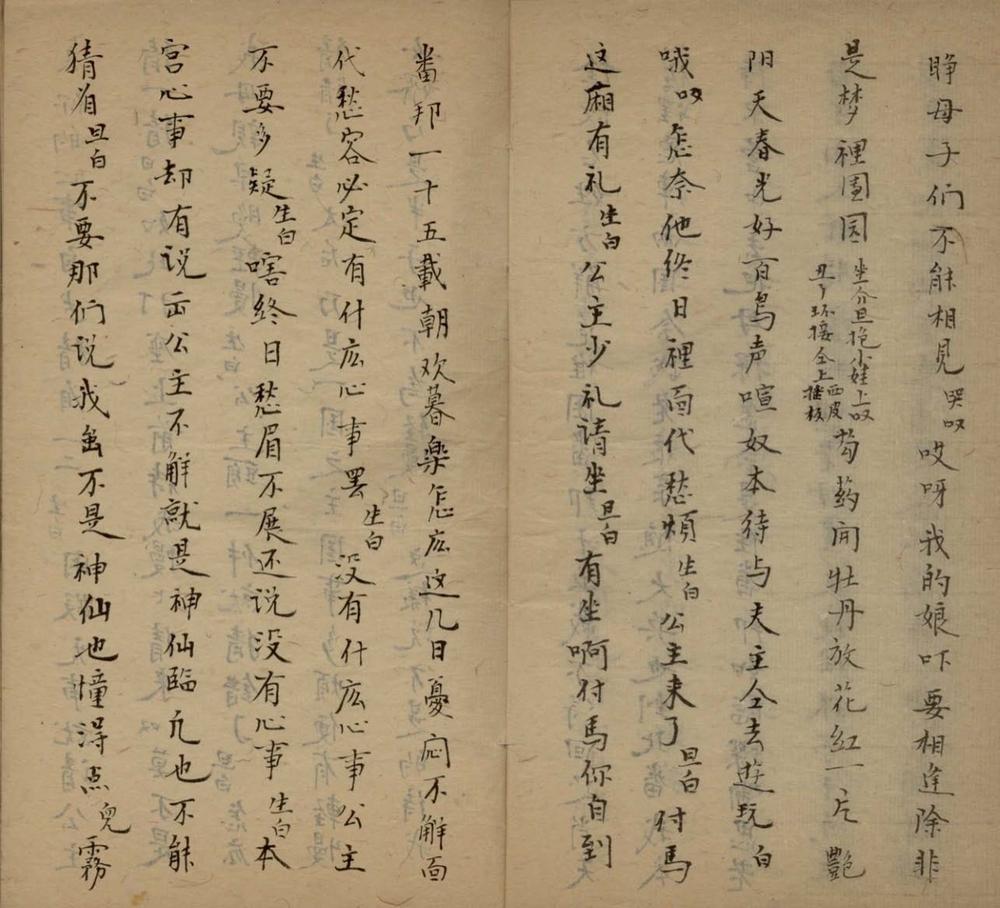 睁母子们不能相見哭叹哎呀我的娘吓要相逢除非
是梦裡团园坐介旦抱小娃上叹丑丫环接仝上西皮搖板芍药開牡丹放花红一片艷
阳天春光好百鸟声喧奴本待与夫主仝去遊玩白
哦叹怎奈他终日裡面代愁煩生白公主来了旦白付馬
这廂有礼生白公主少礼请坐旦白有坐啊付馬你自到
番邦一十五載朝欢暮楽怎庅这几日憂闷不解面
代愁容必定有什庅心事罢生白没有什庅心事公主
不要多疑生白嗐终日愁眉不展还说没有心事生白本
宫心事却有说岀公主不解就是神仙臨凢也不能
猜着旦白不要那们说我虽不是神仙也懂淂点兒霧